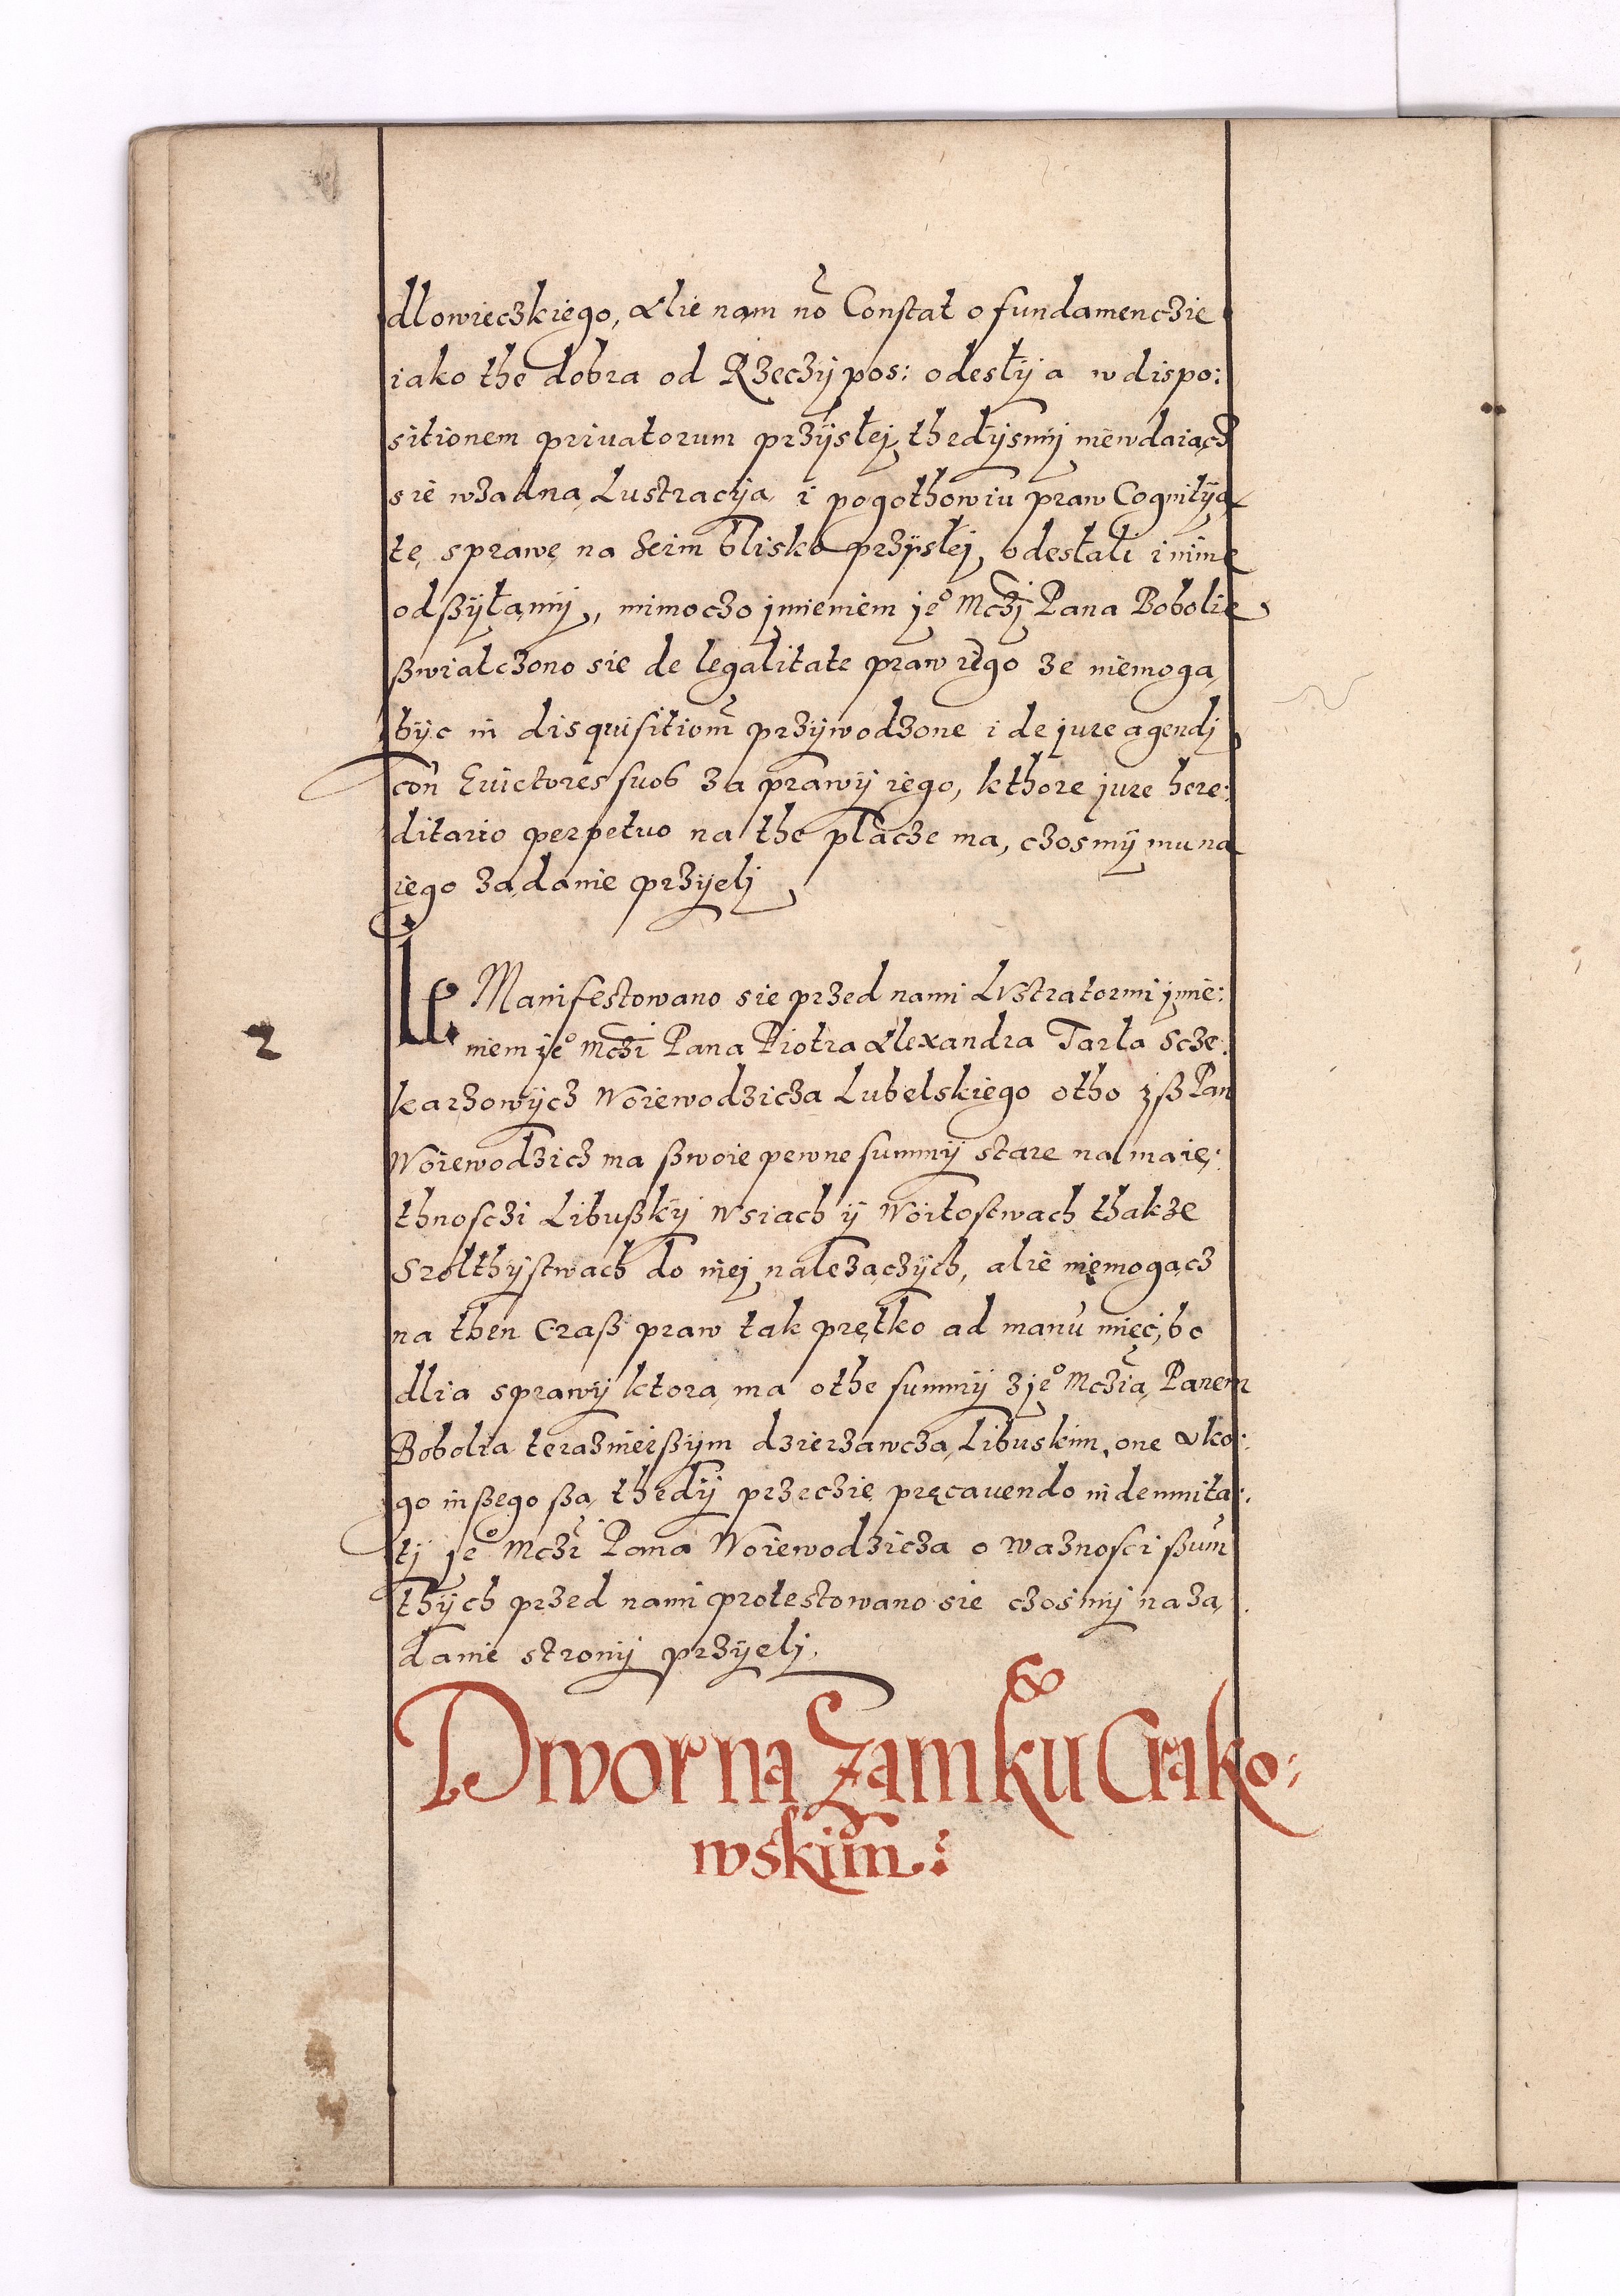 dlowieczkiego, Alie nam nō Constat o fundamenczie
iako the dobra od Rzeczÿ pos: odesłÿ a w dispo:
sitionem priuatorum przÿsłej, thedÿsmÿ niewdaiącz
sie wzadną Lustracÿą i pogothowiu praw Cognitÿą
tę sprawę na Seim blisko przÿsłej, odesłali i ninie
odßÿłamÿ, mimoczo jmieniem je° Mczj Pana Bobolie
ßwiatczono sie de legalitate praw iego ze niemogą
bÿc in disquisitionē przÿwodzone i de jure agendj
con Euictores suos za prawÿ iego, kthore jure here:
ditario perpetuo na the płacze ma, czosmÿ mu na
iego ządanie przÿelj
2
Manifestowano sie przed nami Lustratormi jmie:
niem je° Mczi Pana Piotra Alexandra Tarła Scze:
karzowÿcz Woiewodzicza Lubelskiego otho jß Pan
Woiewodzicz ma ßwoie pewne summÿ stare na maię:
thnosczi Libußkÿ Wsiach ÿ Woitostwach thakze
Szolthÿstwach do niej należączÿch, alie niemogącz
na then Czaß praw tak prętko ad manū mięć, bo
dlia sprawÿ ktorą ma othe summÿ z je° Mczią Panem
Bobolią teraznieißÿm dzierzawczą Libuskim, one u ko:
go inßego ßą, thedÿ przeczie pręcauendo indemnita:
tj je° Mczi Pana Woiewodzicza o waznosci ßum
thÿch przed nami protestowano sie czosmÿ na zą
danie stronÿ przÿelj.
Dwor na Zamku Crako:
wskim.